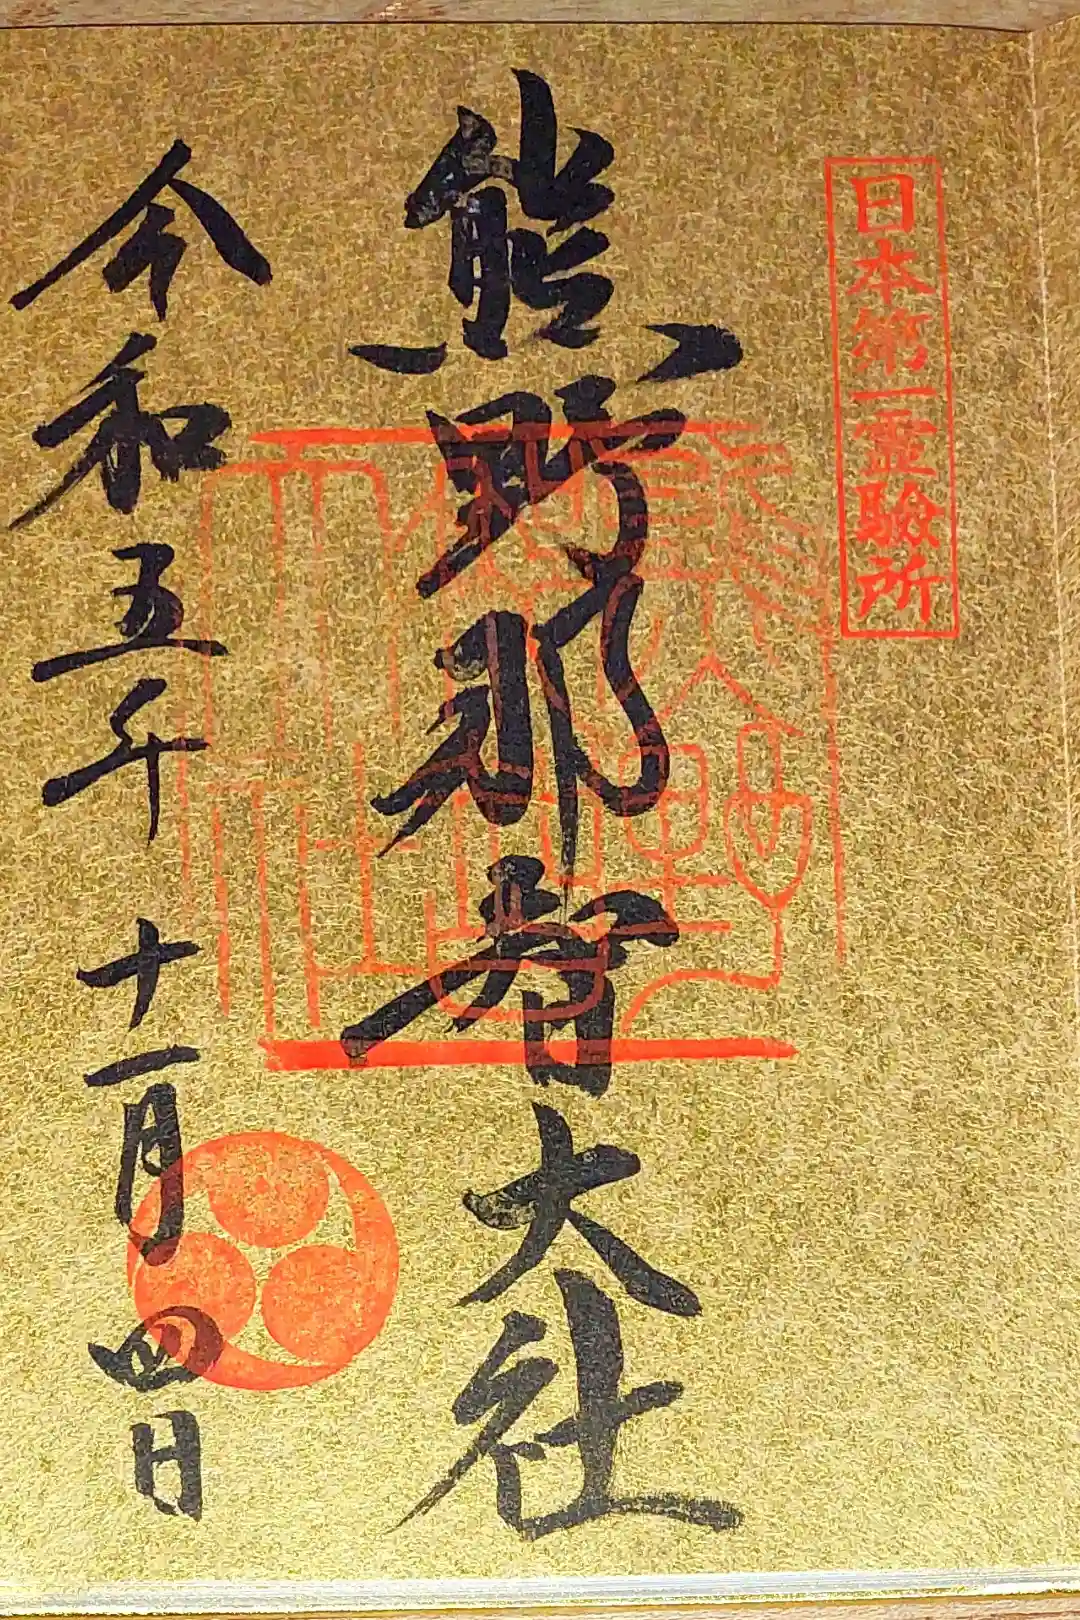 日本第一霊驗所
熊野那智大社
令和五年十一月四日